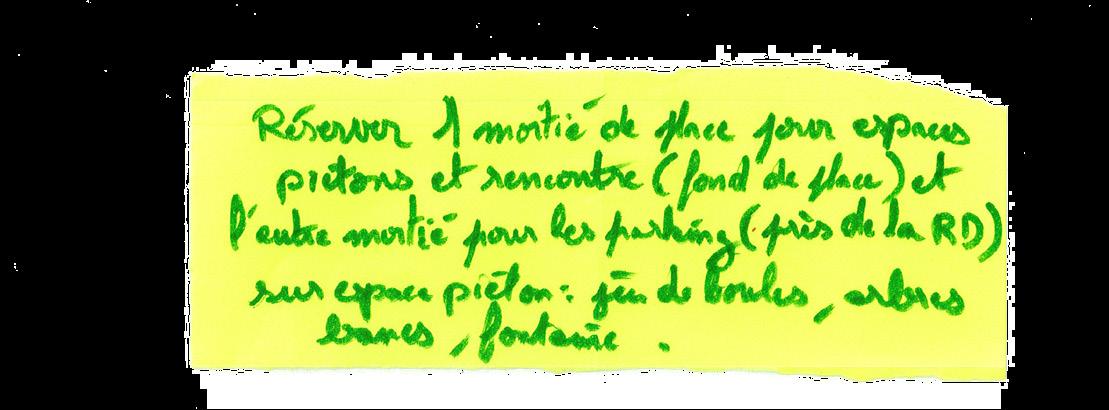 Réserver 1 moitié de place pour espaces
piétons et rencontre (fond de place) et
l'autre moitié pour les parking (près de la RD)
sur espace piéton : jeu de boules, arbres
bancs, fontaine.